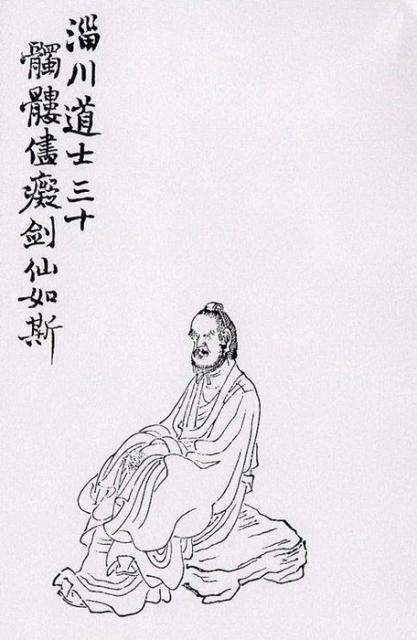 淄川道士三十
髑髏儘癡剣仙如斯